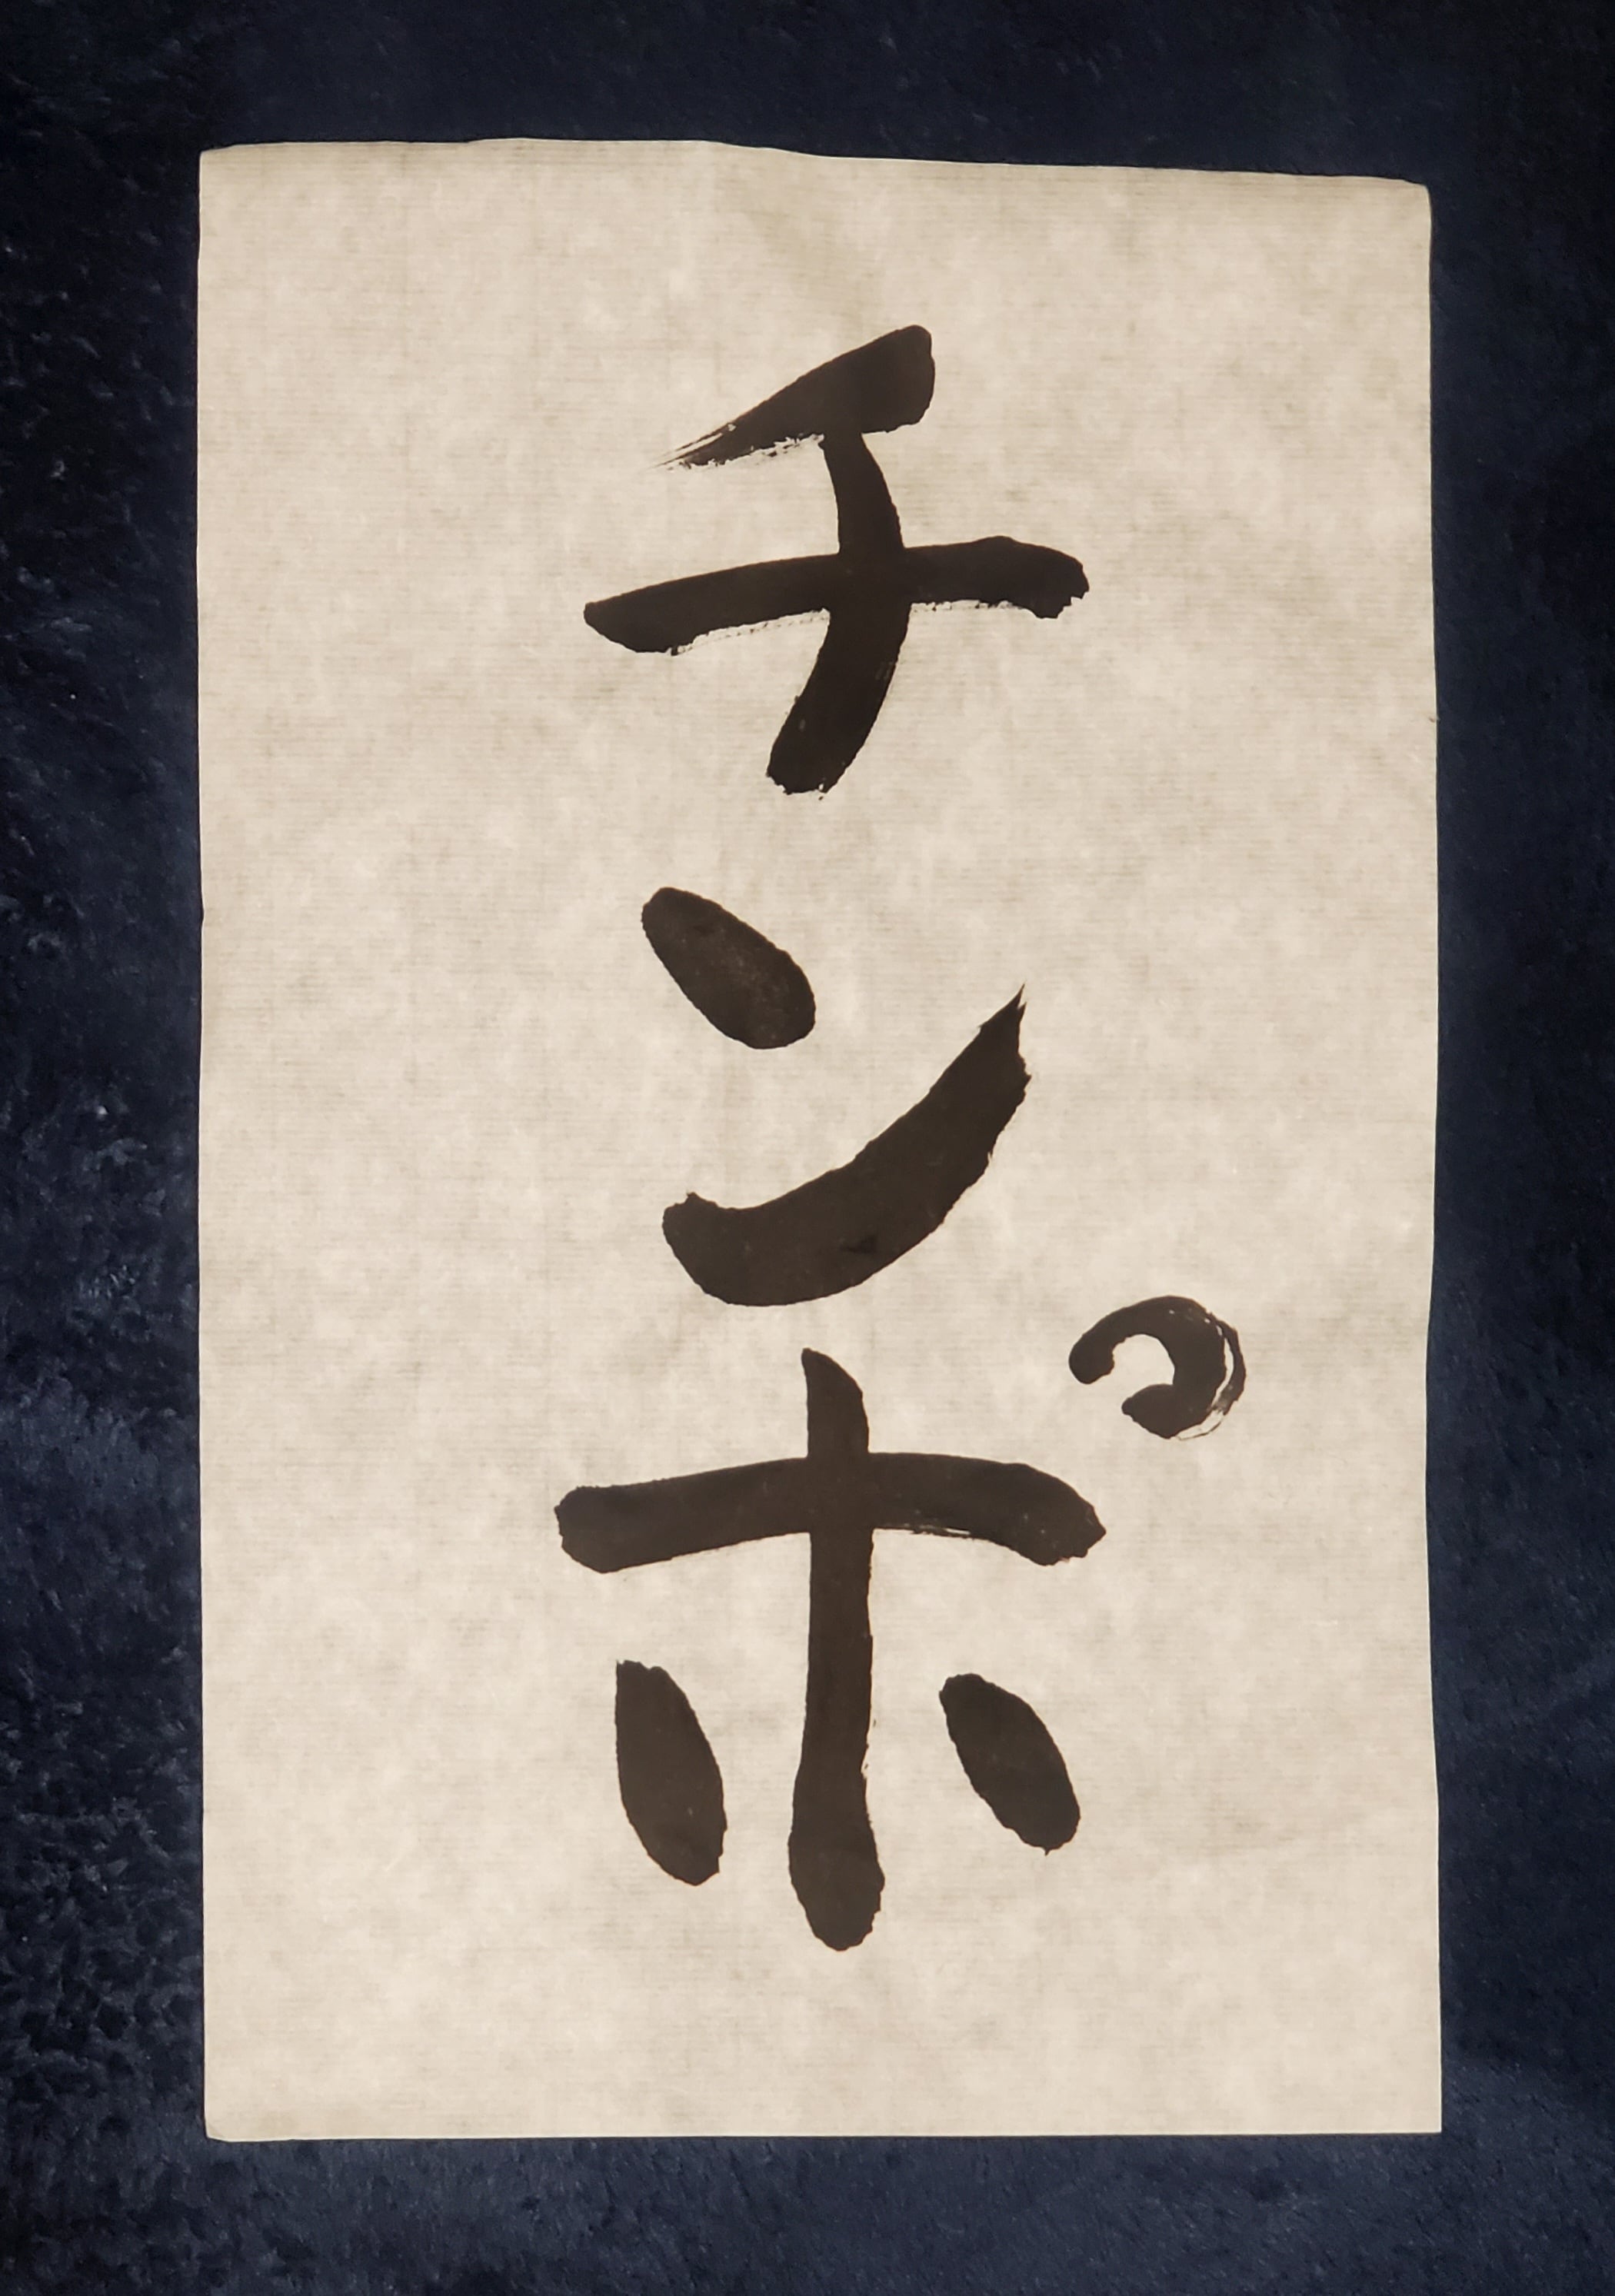 チンポ